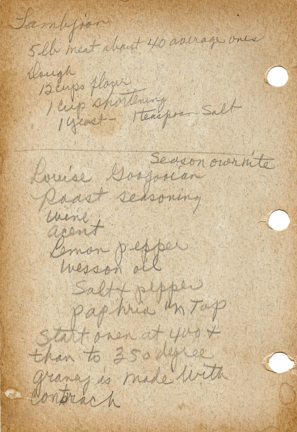 5 lb meat about 40 average ones
Dough
12 cups flour
1 cup shortening
1 yeast - 1 teaspoon salt
Season overnite
Louise
Roast seasoning
wine
acent
Lemon pepper
Wesson oil
Salt & pepper
paphria on Top
Start oven at 400 +
than to 350 degree
gravey is made with